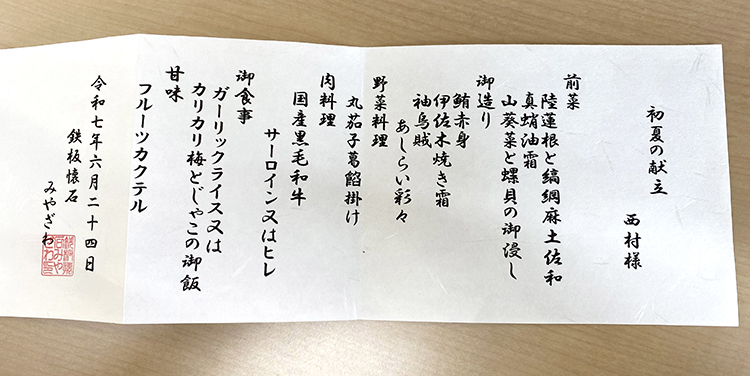 初夏の献立
西村様
前菜
陸蓮根と縞綱麻土佐和
真蛸油霜
山葵菜と螺貝の御浸し
御造り
鮪赤身
伊佐木焼き霜
袖烏賊
あしらい彩々
野菜料理
丸茄子葛餡掛け
肉料理
国産黒毛和牛
サーロイン又はヒレ
御食事
ガーリックライス又は
カリカリ梅とじゃこの御飯
甘味
フルーツカクテル
令和七年六月二十四日
鉄板懐石
みやざわ